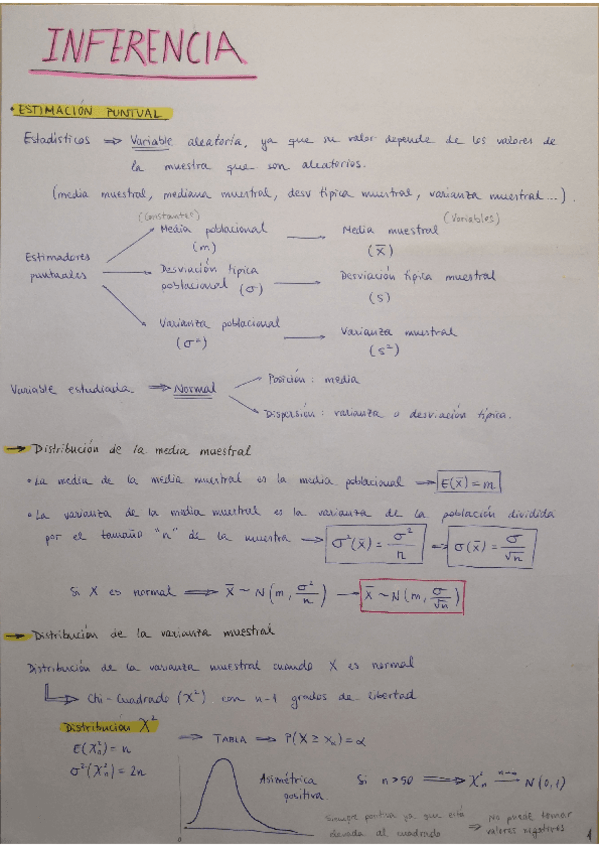 INFERENCIA
• ESTIMACIÓN PUNTUAL
Estadísticos ⇒ Variable aleatoria, ya que su valor depende de los valores de
la muestra que son aleatorios.
(media muestral, mediana muestral, desv típica muestral, varianza muestral...).
(Constantes) (Variables)
Media poblacional → Media muestral
(m) (x̄)
Estimadores
puntuales
Desviación típica → Desviación típica muestral
poblacional (σ) (s)
Varianza poblacional → Varianza muestral
(σ²) (s²)
Variable estudiada ⇒ Normal
Posición: media
Dispersión: varianza o desviación típica.
→ Distribución de la media muestral
• La media de la media muestral es la media poblacional → E(x̄) = m
• La varianza de la media muestral es la varianza de la población dividida
por el tamaño "n" de la muestra → σ²(x̄) = σ²/n ⇒ σ(x̄) = σ/√n
Si X es normal ⇒ X̄ ~ N(m, σ²/n) → X̄ ~ N(m, σ/√n)
→ Distribución de la varianza muestral
Distribución de la varianza muestral cuando X es normal
⇒ Chi-Cuadrado (X²) con n-1 grados de libertad
Distribución X²
E(X²n) = n
σ²(X²n) = 2n
⇒ TABLA ⇒ P(X ≥ xα) = α
Asimétrica
positiva
Si n > 50 ⇒ X²n → N(0,1)
Siempre positiva ya que está
elevada al cuadrado
⇒ No puede tomar
valores negativos
0
1